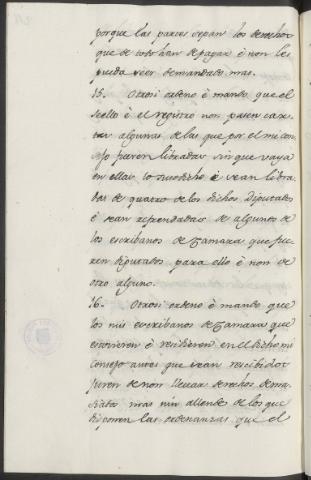 porque las partes sepan los derechos
que de todo han de pagar è non les
pueda seer demandado mas.
15. Otrosi ordeno è mando que el
sello è el registro non pasen car-
tas algunas de las que por el mi con-
sejo fueren libradas sin que vaya
en ellas lo susodicho è sean libra-
das de quatro de los dichos Diputados
è sean refrendadas de algunos de
los escribanos de Camara que fue-
ren diputados para ello è non de
otro alguno.
16. Otrosi ordeno è mando que
los mis escribanos de Camara que
sirvieren è residieren en el dicho mi
Consejo antes que sean rescibidos
juren de non llevar derechos dema-
siados mas nin allende de los que
disponen las ordenanzas que el